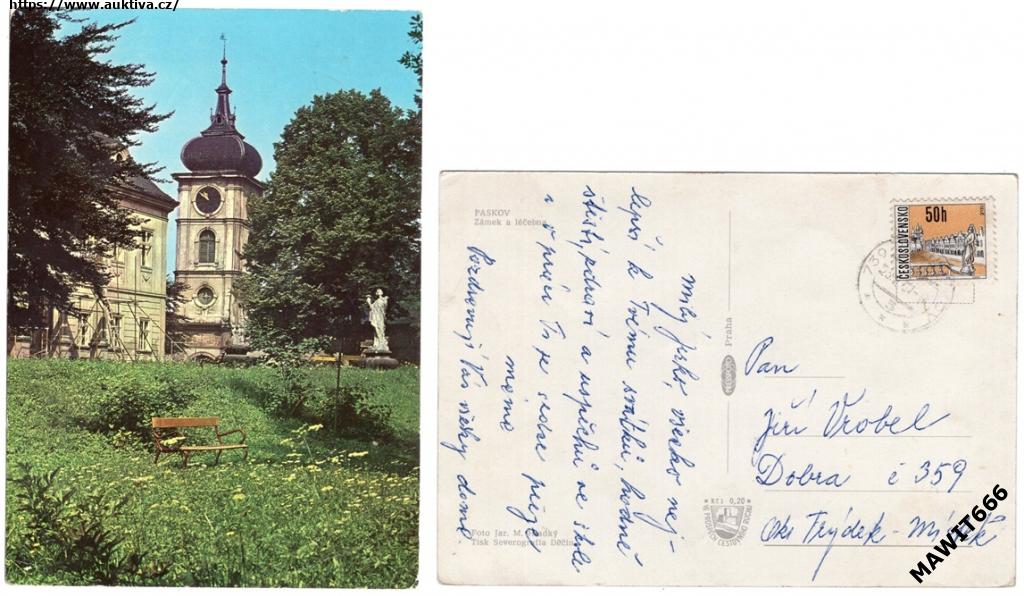 https://www.auktiva.cz/
PASKOV
Zámek a léčebna
Milý Jirko, všecko nej-
lepší k Tvému svátku, hodně
štěstí, zdraví a uspěchu ve škole
i v práci Ti ze srdce přeje
máma
Pozdravují Vás všicky doma
Foto Jar. M. Sladký
Tisk Severografia Děčín
Praha
ČESKOSLOVENSKO
50h
739
KčS 0,20
VE PROSPĚCH CESTOVNÍHO RUCHU
Pan
Jiří Vrobel
Dobra č 359
Okr Frýdek-Místek
MAWIT666